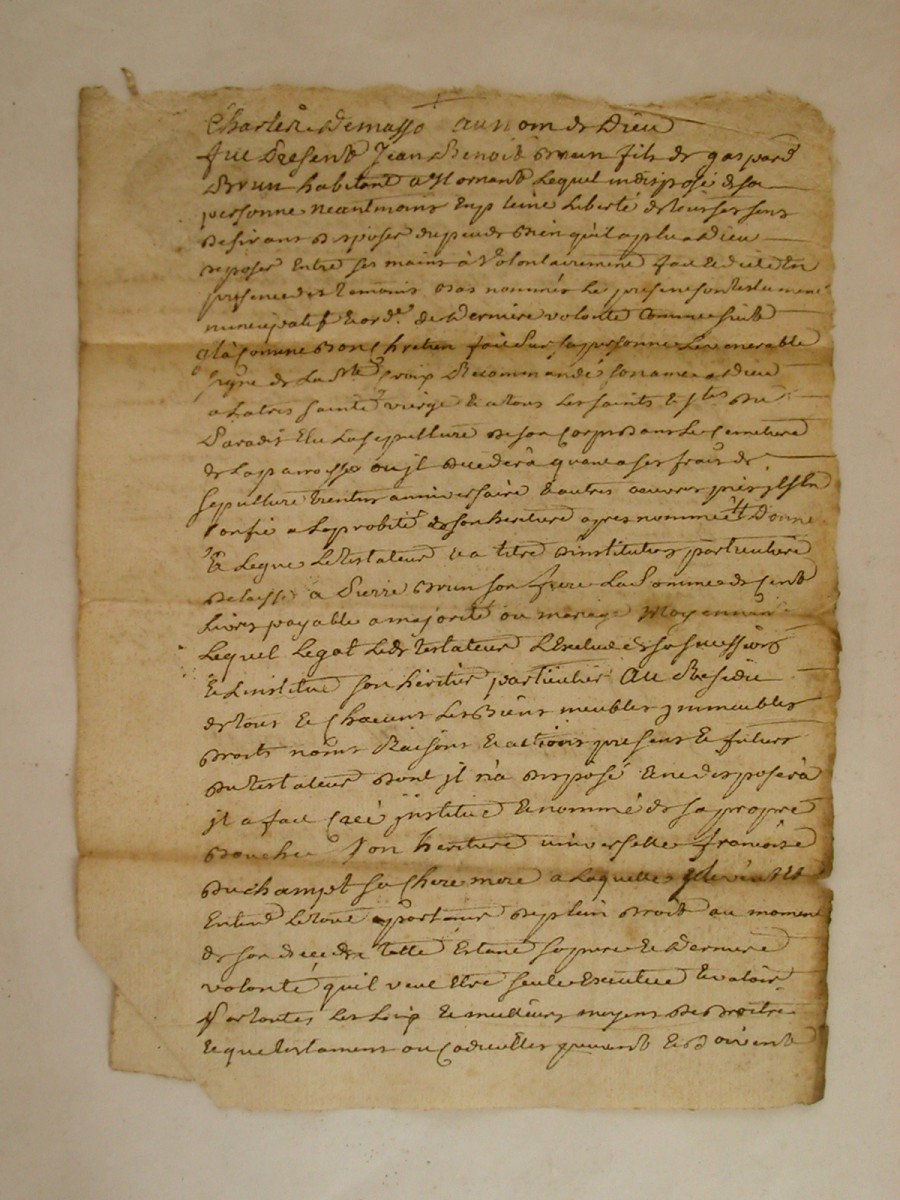 Charles Demasso au nom de Dieu
fut Present Jean Benoit Brun fils de gaspard
Brun habitant a Mornant Lequel indisposé de sa
personne neantmoins En pleine Liberté de tous ses sens
desirant disposer du peu de Bien qu'il a plu a Dieu
deposer Entre ses mains à Volontairement fait & dicté En
presence des temoins Bas nommés Le present son testament
nuncupatif & ord.e de derniere volonté Comme suit
a la Comme Bon Chretien fait sur sa personne Le venerable
signe de La Ste Croix Recommandé son ame a Dieu
a La tres sainte vierge & a tous Les saints & stes du
Paradis Elu La sepulture de son Corps dans Le Cemetiere
de La parroisse ou jl decedera quant a ses frais de
sepulture anniversaire & autres oeuvres pies jl s'En
Confie a La probité de son heritiere apres nommée Donne
& Legue Le testateur & a titre d'institution particuliere
delaisse a Pierre Brun son frere La somme de Cent
Livres payable a majorité ou mariage Moyennant
Lequel Legat Ledt testateur L'Exclud de sa succession
& L'institue son heritier particulier Au Residu
de tous & Chacuns Les Biens meubles jmmeubles
droits noms Raisons & actions presents & futurs
du testateur dont jl n'a disposé & ne disposera
jl a fait Créé jnstitué & nommé de sa propre
Bouche son heritiere universelle francoise
Duchampt sa Chere mere a Laquelle
Entend Le tout apartenir de plein droit au moment
de son decede telle Etant sa pure & derniere
volonté qu'il veut Etre seule Executée & valoir
Par toutes Les Loix & meilleurs moyens de droits
& que testaments ou Codicilles peuvent & doivent